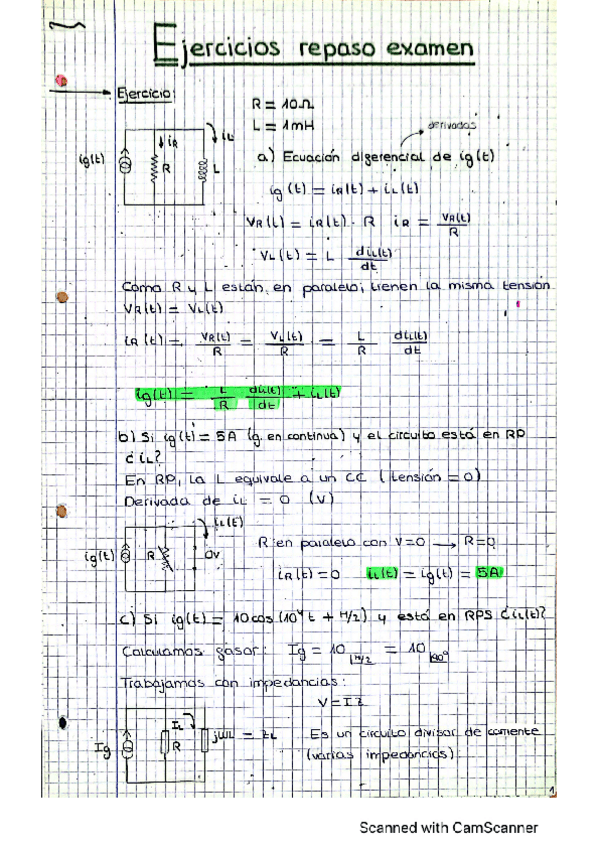 Ejercicios repaso examen
Ejercicio:
R = 10Ω
L = 1mH
ig(t)
iR
iL
R
L
derivadas
a) Ecuación digerencial de ig(t)
ig(t) = iR(t) + iL(t)
VR(t) = iR(t) · R   iR = VR(t)/R
VL(t) = L diL(t)/dt
Como R y L están en paralelo, tienen la misma tensión
VR(t) = VL(t)
iR(t) = VR(t)/R = VL(t)/R = L/R diL(t)/dt
ig(t) = L/R diL(t)/dt + iL(t)
b) Si ig(t) = 5A (g. en continua) y el circuito está en RP
¿iL?
En RP, la L equivale a un CC (tensión = 0)
Derivada de iL = 0 (V)
ig(t)
R
iL(t)
0V
R en paralelo con V=0 → R=0
iR(t) = 0   iL(t) = ig(t) = 5A
c) Si ig(t) = 10cos(10⁴t + π/2) y está en RPS ¿iL(t)?
Calculamos gasor: Ig = 10 |π/2 = 10 |90°
Trabajamos con impedancias:
V = I Z
Ig
IL
R
jωL = ZL
Es un circuito divisor de corriente
(varias impedancias)
1
Scanned with CamScanner